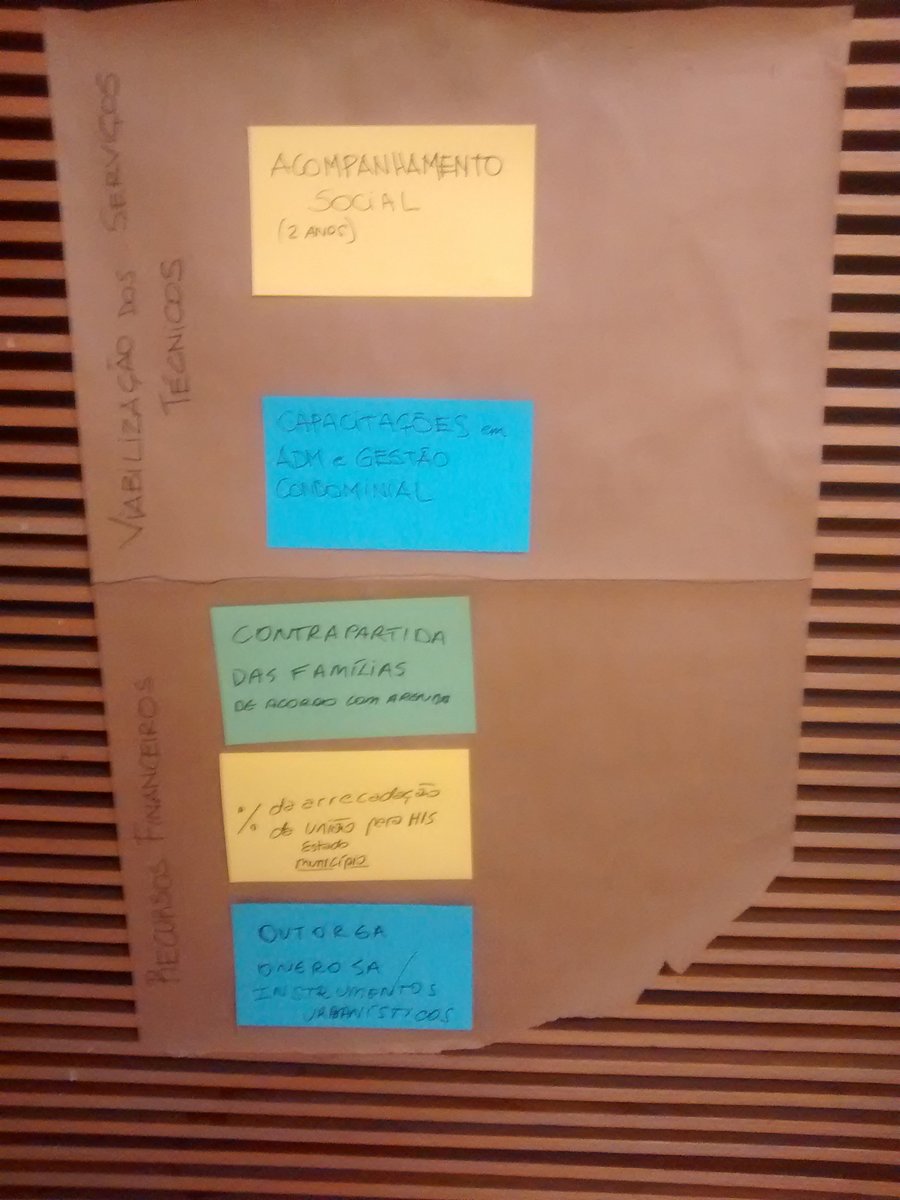 VIABILIZAÇÃO DOS SERVIÇOS
TÉCNICOS
ACOMPANHAMENTO
SOCIAL
(2 ANOS)
CAPACITAÇÕES em
ADM e GESTÃO
CONDOMINIAL
RECURSOS FINANCEIROS
CONTRAPARTIDA
DAS FAMÍLIAS
DE ACORDO COM A RENDA
% da arrecadação
da UNIÃO para HIS
Estado
MUNICÍPIO
OUTORGA
ONEROSA /
INSTRUMENTOS
URBANÍSTICOS